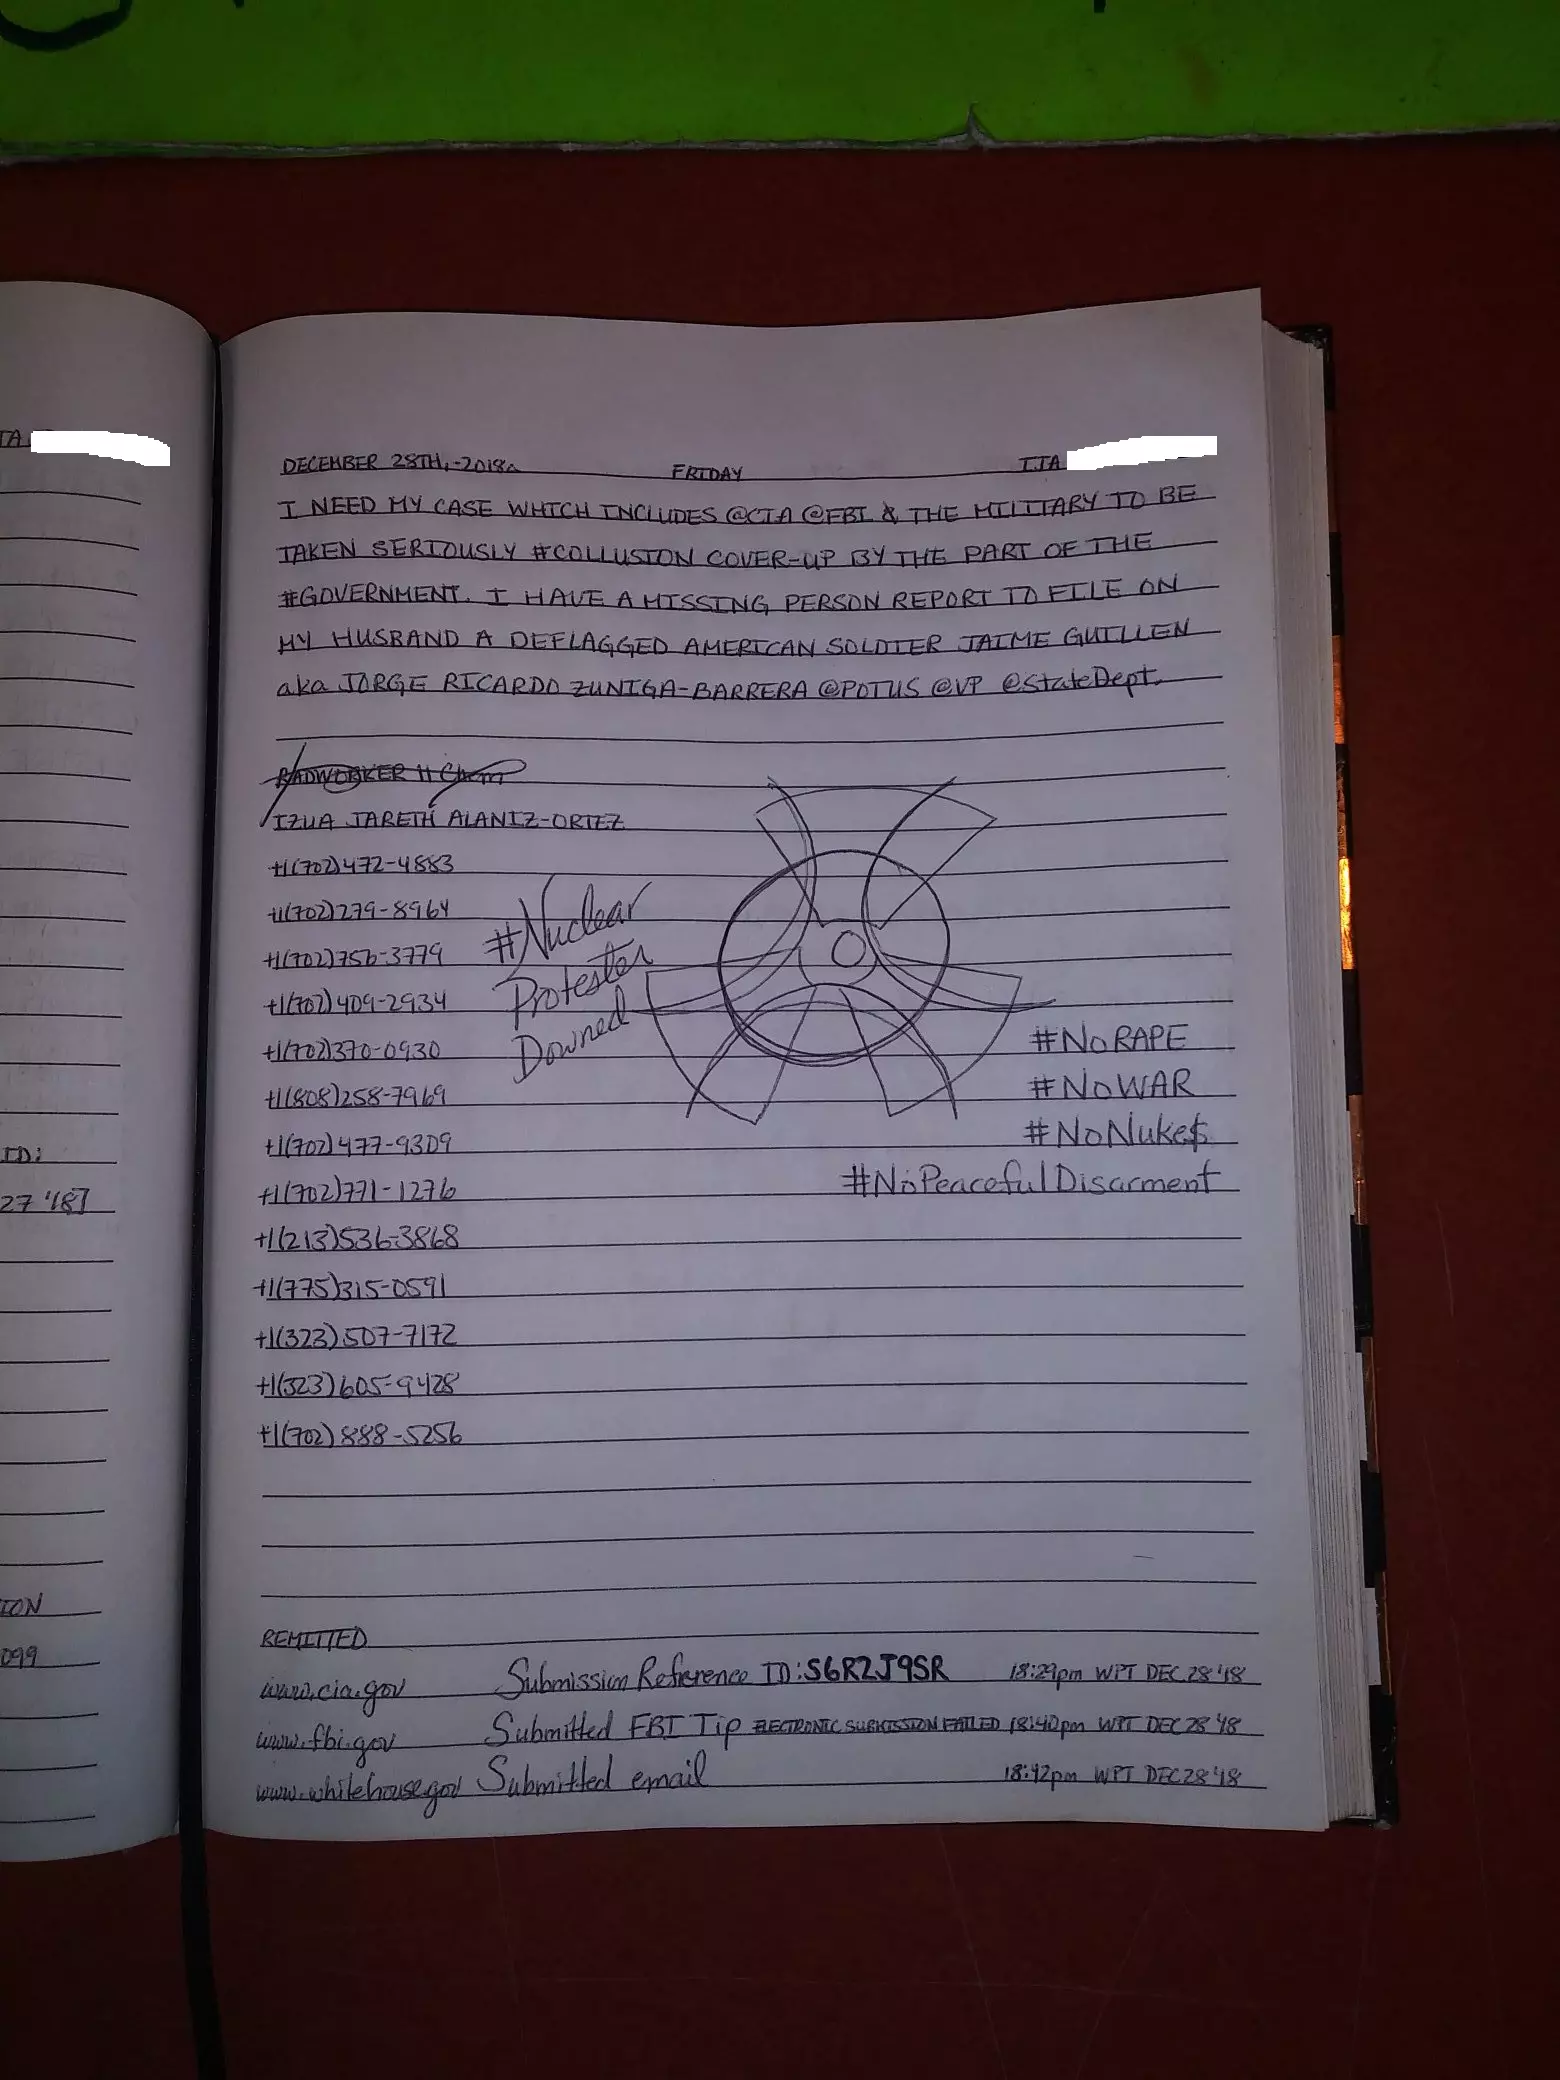 TA
ID:
27 '18]
ION
099
DECEMBER 28TH,-2018 FRIDAY IJA
I NEED MY CASE WHICH INCLUDES @CIA @FBI & THE MILITARY TO BE
TAKEN SERIOUSLY #COLLUSION COVER-UP BY THE PART OF THE
#GOVERNMENT. I HAVE A MISSING PERSON REPORT TO FILE ON
MY HUSBAND A DEFLAGGED AMERICAN SOLDIER JAIME GUILLEN
aka JORGE RICARDO ZUNIGA-BARRERA @POTUS @VP @StateDept.
RADWORKER II Chem
IZUA JARETH ALANIZ-ORTEZ
+1(702)472-4883
+1(702)279-8964
+1(702)756-3779
+1(702)409-2934
+1(702)370-0930
+1(808)258-7969
+1(702)477-9309
+1(702)771-1276
+1(213)536-3868
+1(775)315-0591
+1(323)507-7172
+1(323)605-9428
+1(702)888-5256
#Nuclear
Protester
Downed
#NoRAPE
#NoWAR
#NoNuke$
#NoPeacefulDisarment
REMITTED
www.cia.gov Submission Reference ID:S6R2J9SR 18:29pm WPT DEC 28 '18
www.fbi.gov Submitted FBI Tip ELECTRONIC SUBMISSION FAILED 18:40pm WPT DEC 28 '18
www.whitehouse.gov Submitted email 18:42pm WPT DEC 28 '18